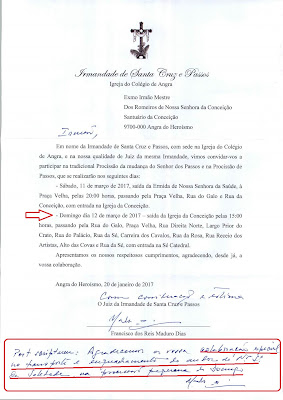 Irmandade de Santa Cruz e Passos
Igreja do Colégio de Angra
Exmo Irmão Mestre
Dos Romeiros de Nossa Senhora da Conceição
Santuário da Conceição
9700-000 Angra do Heroísmo
Em nome da Irmandade de Santa Cruz e Passos, com sede na Igreja do Colégio
de Angra, e na nossa qualidade de Juiz da mesma Irmandade, vimos convidar-vos a
participar na tradicional Procissão da mudança do Senhor dos Passos e na Procissão de
Passos, que se realizarão nos seguintes dias:
- Sábado, 11 de março de 2017, saída da Ermida de Nossa Senhora da Saúde, à
Praça Velha, pelas 20:00 horas, passando pela Praça Velha, Rua do Galo e Rua da
Conceição, com entrada na Igreja da Conceição.
- Domingo dia 12 de março de 2017 – saída da Igreja da Conceição pelas 15:00
horas, passando pela Rua do Galo, Praça Velha, Rua Direita Norte, Largo Prior do
Crato, Rua do Palácio, Rua da Sé, Carreira dos Cavalos, Rua da Rosa, Rua Recreio dos
Artistas, Alto das Covas e Rua da Sé, com entrada na Sé Catedral.
Apresentamos os nossos respeitosos cumprimentos, agradecendo, desde já, a
vossa colaboração.
Angra do Heroísmo, 20 de janeiro de 2017
Com consideração e estima
O Juiz da Irmandade de Santa Cruz e Passos
Francisco dos Reis Maduro Dias
Post scriptum: Agradecemos a vossa colaboração especial
no transporte e enquadramento do andor de Nª Sª
da Soledade na procissão pequena de Domingo